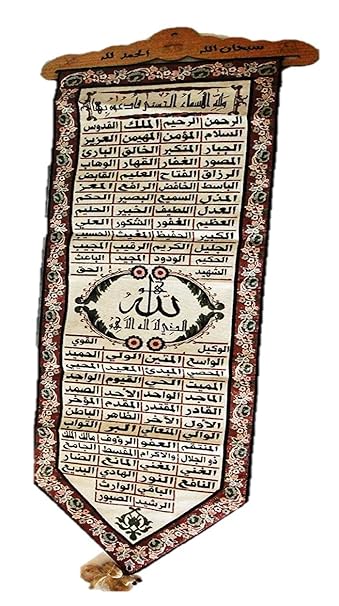 سبحان الله الحمد لله
ولله الأسماء الحسنى فادعوه بها
الرحمن الرحيم الملك القدوس
السلام المؤمن المهيمن العزيز
الجبار المتكبر الخالق البارئ
المصور الغفار القهار الوهاب
الرزاق الفتاح العليم القابض
الباسط الخافض الرافع المعز
المذل السميع البصير الحكم
العدل اللطيف الخبير الحليم
العظيم الغفور الشكور العلي
الكبير الحفيظ المغيث الحسيب
الجليل الكريم الرقيب المجيب
الحكيم الودود المجيد الباعث
الشهيد الحق
هو
الله
الذي لا إله إلا هو
الوكيل القوي
الواسع المتين الولي الحميد
المحصي المبدئ المعيد المحيي
المميت الحي القيوم الواجد
الماجد الواحد الأحد الصمد
القادر المقتدر المقدم المؤخر
الأول الآخر الظاهر الباطن
الوالي المتعالي البر التواب
المنتقم العفو الرؤوف مالك الملك
ذو الجلال والاكرام المقسط الجامع
الغني المغني المانع الضار
النافع النور الهادي البديع
الباقي الوارث
الرشيد الصبور